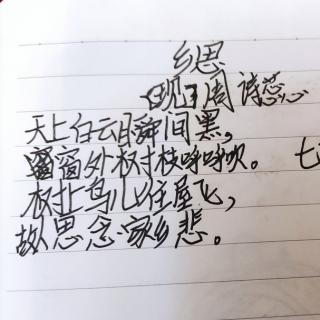 乡思
(现)周诗蕊
天上白云瞬间黑,
窗外树枝呼呼吹。 七
树上鸟儿往屋飞,
故人思念家乡悲。